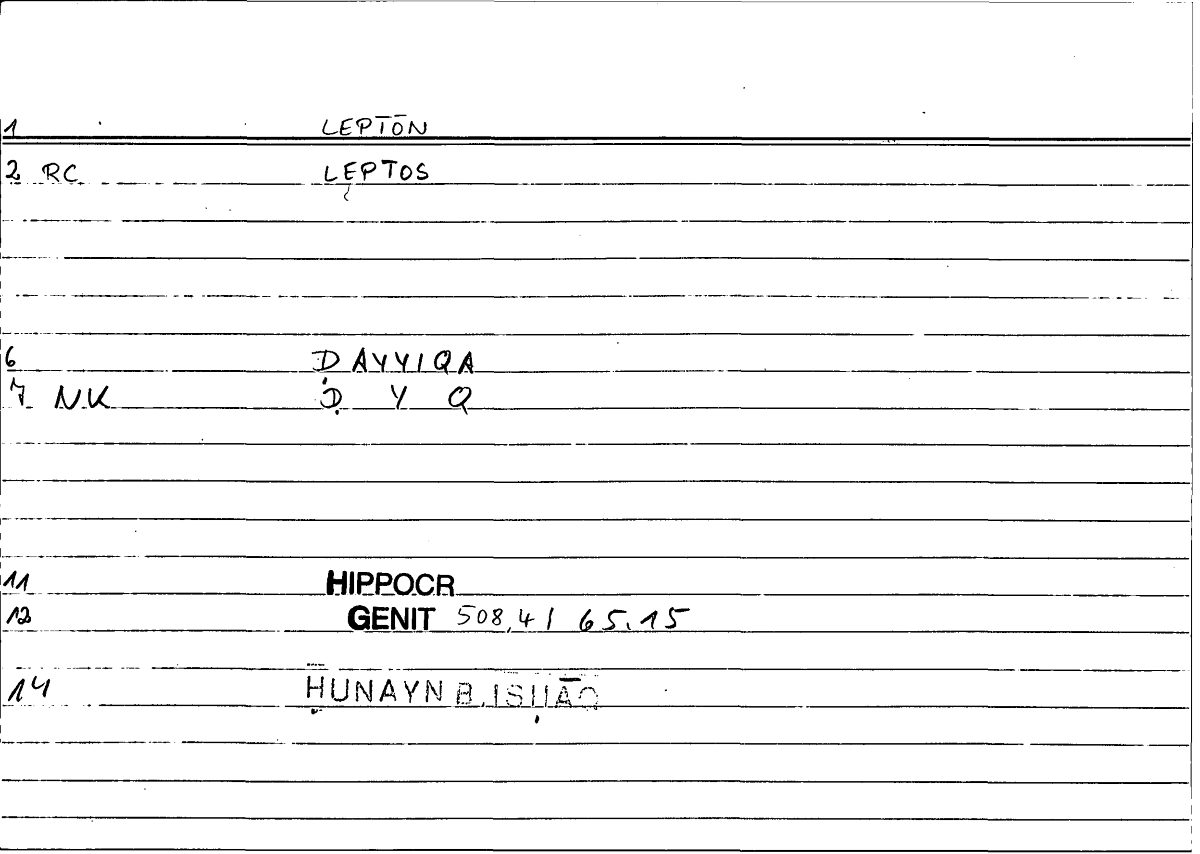 1 LEPTŌN
2 RC LEPTOS
6 ḌAYYIQA
7 NK Ḍ Y Q
11 HIPPOCR
12 GENIT 508,4 / 65.15
14 ḤUNAYN B. ISḤĀQ